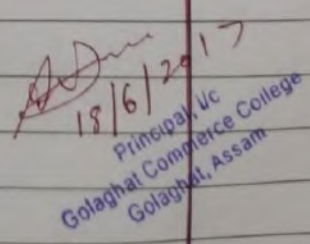 18/6/2017
Principal, I/c
Golaghat Commerce College
Golaghat, Assam